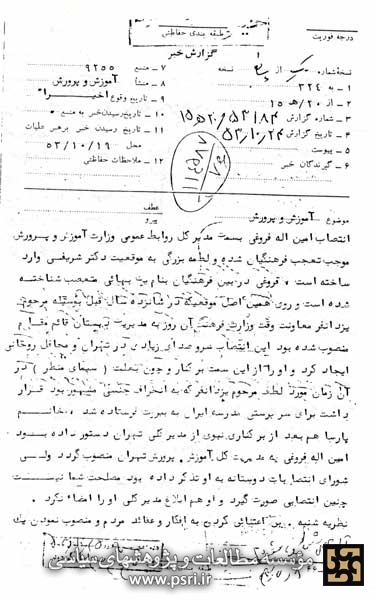 درجه فوریت
طبقه بندی حفاظتی
گزارش خبر
نسخه شماره یک از نسخه
۱ - به ۳۲۴
۲ - از ۲۰ / هـ ۱۵
۳ - شماره گزارش
۴ - تاریخ گزارش ۵۳/۱۰/۲۴
۵ - پیوست
۶ - گیرندگان خبر
۷ - منبع ۹۲۵۵
۸ - منشأ آموزش و پرورش
۹ - تاریخ وقوع اخیراً
۱۰ - تاریخ رسیدن خبر به منبع
۱۱ - تاریخ رسیدن خبر برهبر عملیات
محل ۵۳/۱۰/۱۹
۱۲ - ملاحظات حفاظتی
موضوع آموزش و پرورش
عطف
پیرو
انتصاب امین اله فروغی بسمت مدیر کل روابط عمومی وزارت آموزش و پرورش
موجب تعجب فرهنگیان شده و لطمه بزرگی به موقعیت دکتر شریفی وارد
ساخته است ، فروغی در بین فرهنگیان بنام یک بهائی متعصب شناخته
شده است و روی همین اصل موقعیکه در شانزده سال قبل بوسیله مرحوم
یزدانفر معاونت وقت وزارت فرهنگ آن روز به مدیریت دبستان قائم مقام
منصوب شده بود این انتصاب سر و صدای زیادی در تهران و محافل روحانی
ایجاد کرد و او را از این سمت بر کنار و چون بعلت ( سیمای منظر ) در
آن زمان مورد لطف مرحوم یزدانفر که به انحراف جنسی مشهور بود قرار
داشت برای سر پرستی مدرسه ایران به بیروت فرستاده شد ، خانم
پارسا هم بعد از بر کناری نبوی از مدیر کلی تهران دستور داده بود
امین اله فروغی به مدیریت کل آموزش و پرورش تهران منصوب گردد ولی
شورای انتصابات دوستانه به او تذکر داده بود مصلحت شما نیست
چنین انتصابی صورت گیرد و او هم ابلاغ مدیر کلی او را امضاء نکرد .
نظریه شنبه . بی اعتنائی کردن به افکار و عقائد مردم و منصوب نمودن یک
مؤسسه مطالعات و پژوهشهای سیاسی
www.psri.ir